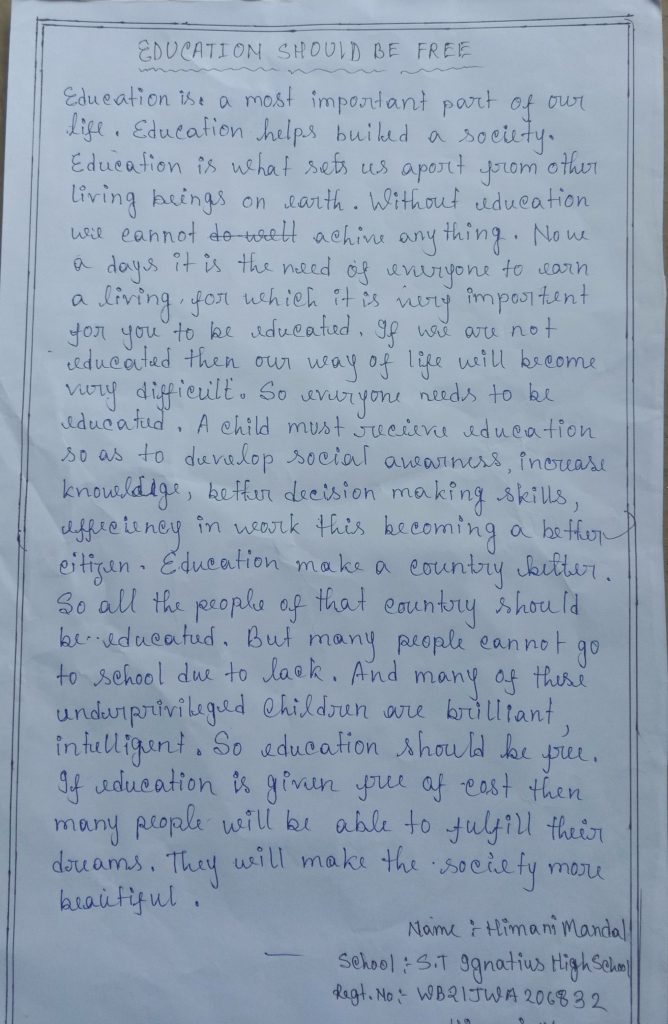 EDUCATION SHOULD BE FREE
Education is a most important part of our
life. Education helps builed a society.
Education is what sets us aport from other
living beings on earth. Without education
we cannot do well achive any thing. Now
a days it is the need of everyone to earn
a living, for which it is very importent
for you to be educated. If we are not
educated then our way of life will become
very difficult. So everyone needs to be
educated. A child must recieve education
so as to develop social awarness, increase
knowledge, better decision making skills,
effeciency in work this becoming a better
citizen. Education make a country better.
So all the people of that country should
be educated. But many people cannot go
to school due to lack. And many of these
underprivileged children are brilliant,
intelligent. So education should be free.
If education is given free of cost then
many people will be able to fulfill their
dreams. They will make the society more
beautiful.
Name :- Himani Mandal
School :- S.T Ignatius High School
Regt. No :- WB21JWA206832